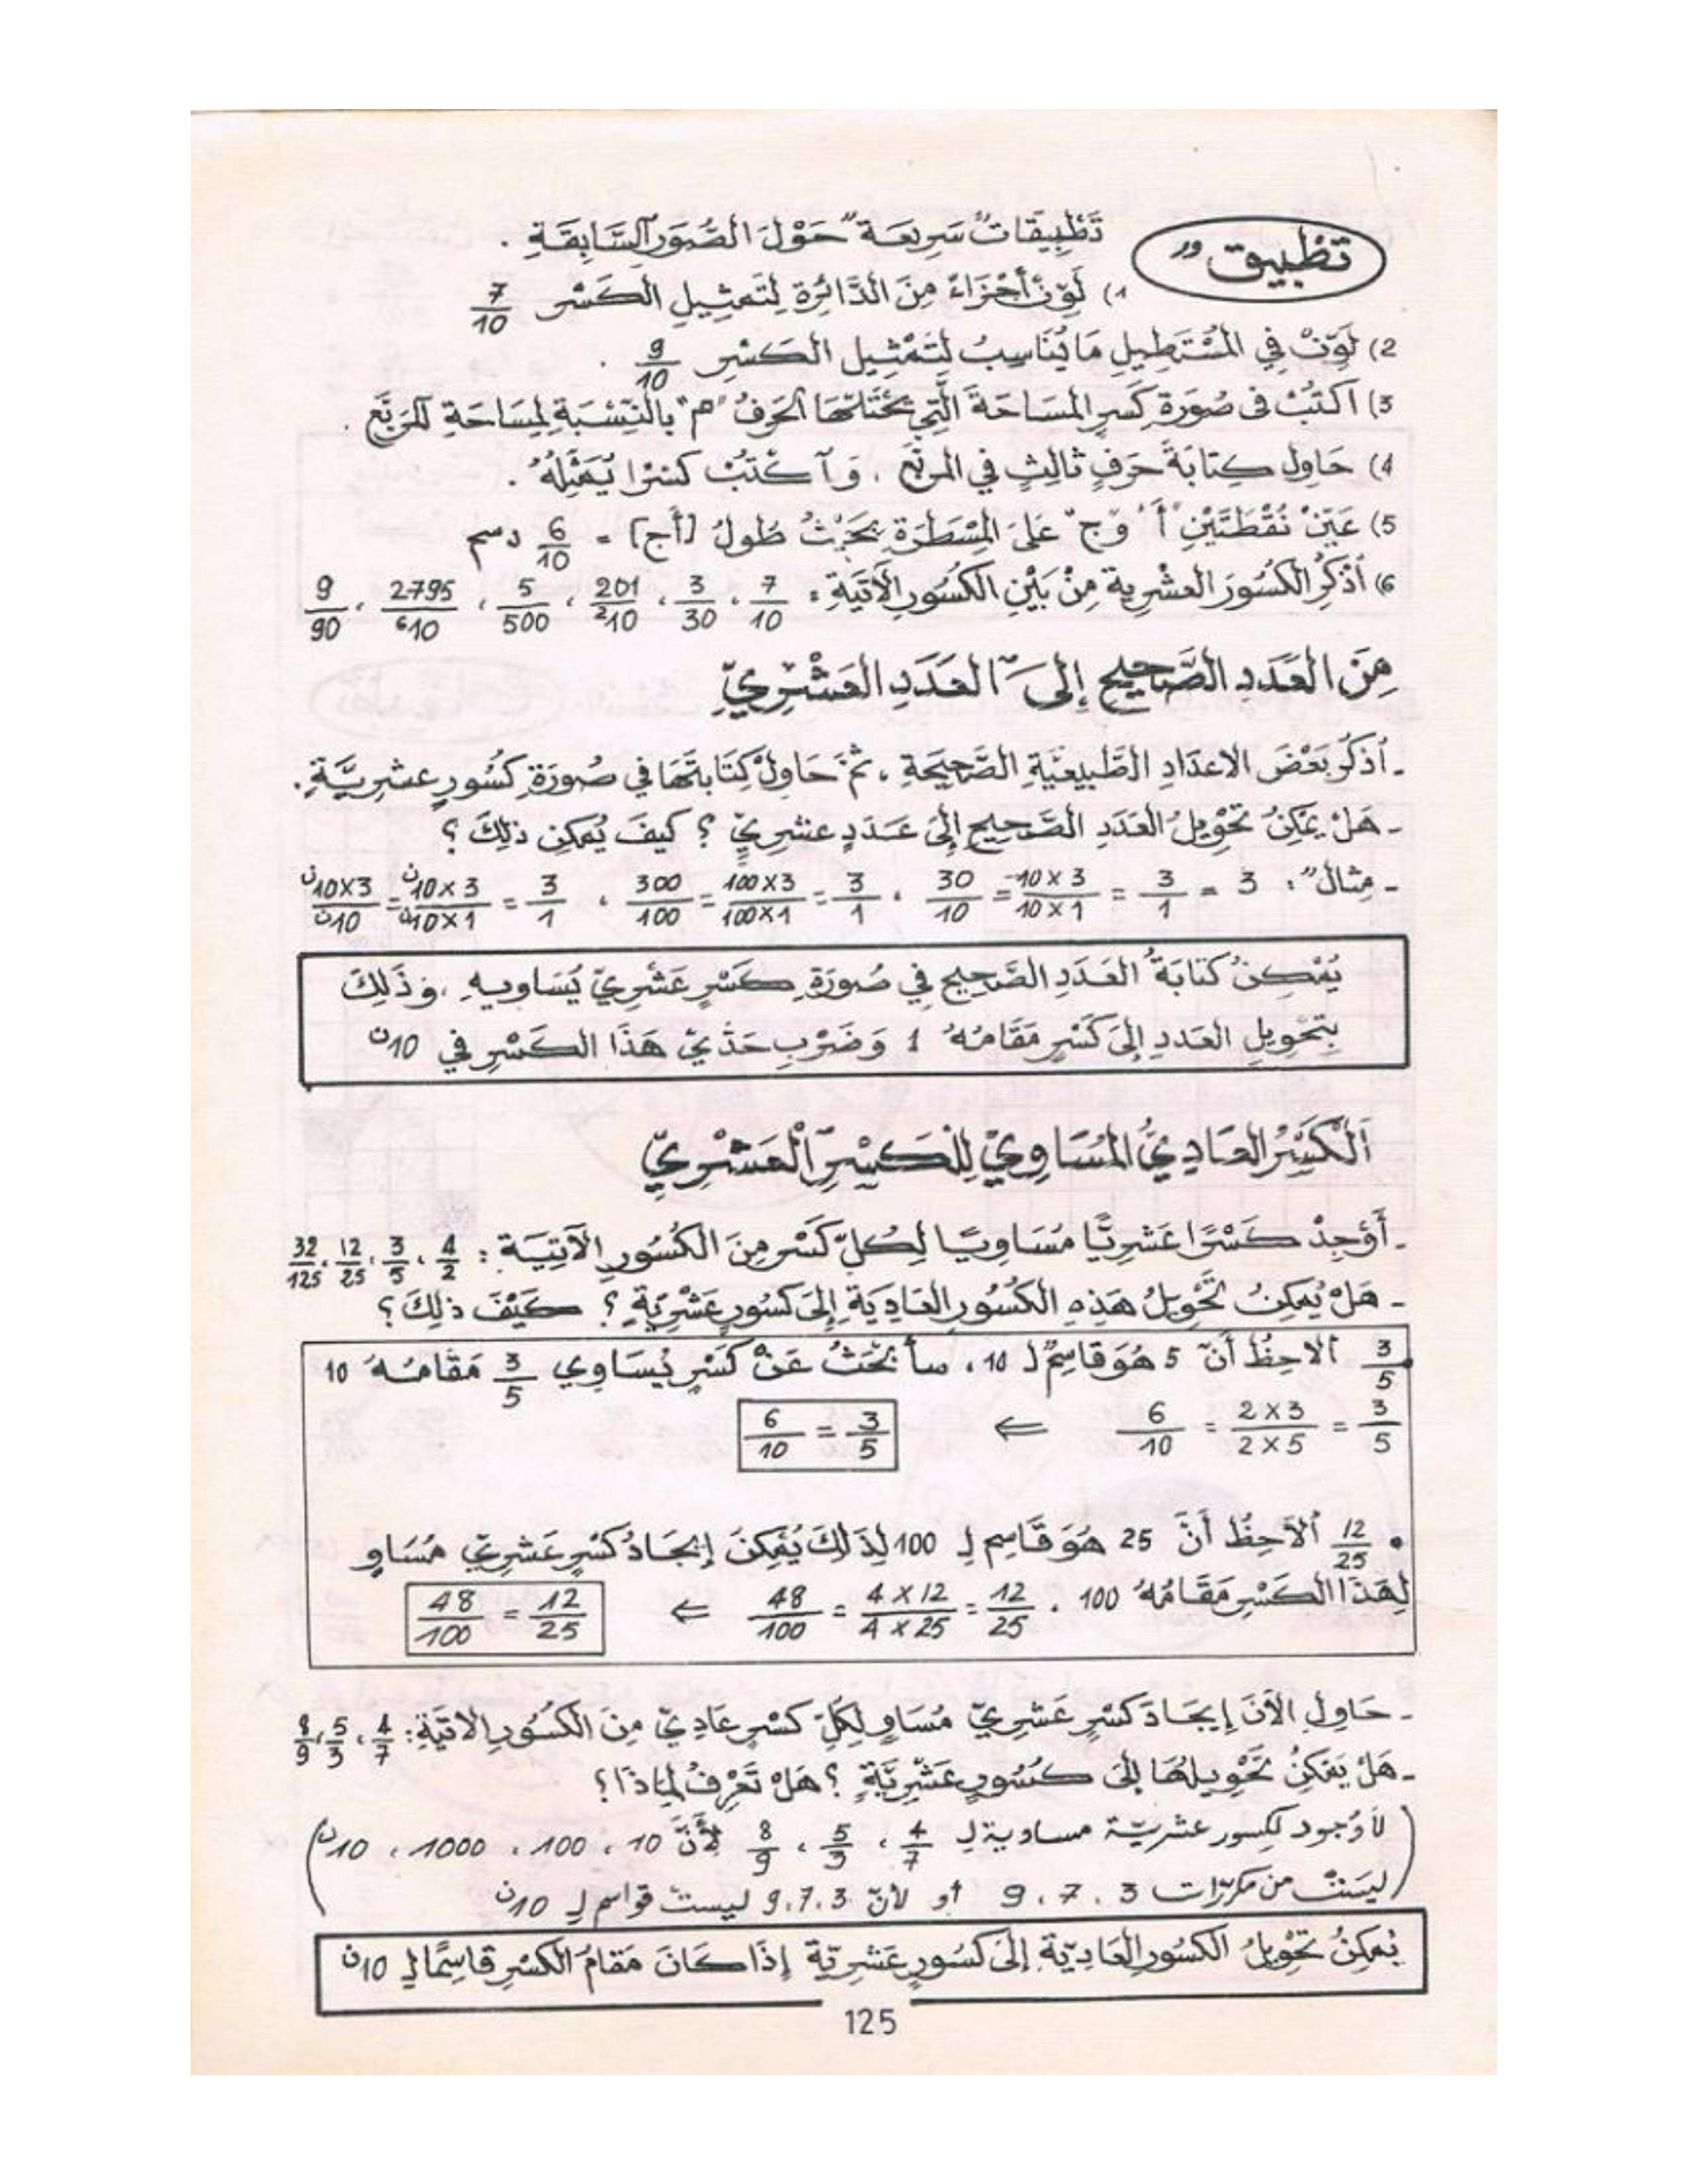 تطبيق
تَطْبِيقَاتٌ سَرِيعَةٌ حَوْلَ الصُّوَرِ السَّابِقَةِ .
1) لَوِّنْ أَجْزَاءً مِنَ الدَّائِرَةِ لِتَمْثِيلِ الْكَسْرِ 7/10
2) لَوِّنْ فِي الْمُسْتَطِيلِ مَا يُنَاسِبُ لِتَمْثِيلِ الْكَسْرِ 9/10 .
3) اكْتُبْ فِي صُورَةِ كَسْرٍ الْمِسَاحَةَ الَّتِي يَحْتَلُّهَا الْحَرْفُ "م" بِالنِّسْبَةِ لِمِسَاحَةِ الْمُرَبَّعِ .
4) حَاوِلْ كِتَابَةَ حَرْفٍ ثَالِثٍ فِي الْمُرَبَّعِ ، وَاكْتُبْ كَسْرًا يُمَثِّلُهُ .
5) عَيِّنْ نُقْطَتَيْنِ "أ" وَ"ج" عَلَى الْمِسْطَرَةِ بِحَيْثُ طُولُ [أج] = 6/10 دسم
6) أُذْكُرِ الْكُسُورَ الْعَشْرِيةَ مِنْ بَيْنِ الْكُسُورِ الْآتِيَةِ : 7/10 ، 3/30 ، 201/10² ، 5/500 ، 2795/10⁶ ، 9/90
مِنَ الْعَدَدِ الصَّحِيحِ إِلَى الْعَدَدِ الْعَشْرِيِّ
- أُذْكُرْ بَعْضَ الاعْدَادِ الطَّبِيعِيَّةِ الصَّحِيحَةِ ، ثُمَّ حَاوِلْ كِتَابَتَهَا فِي صُورَةِ كُسُورٍ عَشْرِيَّةٍ .
- هَلْ يُمْكِنُ تَحْوِيلُ الْعَدَدِ الصَّحِيحِ إِلَى عَدَدٍ عَشْرِيٍّ ؟ كَيْفَ يُمْكِنُ ذلِكَ ؟
- مِثَالٌ : 3 = 3/1 = 10×3/10×1 = 30/10 ، 3/1 = 100×3/100×1 = 300/100 ، 3/1 = 10ن×3/10ن×1 = 10ن×3/10ن
يُمْكِنُ كِتَابَةُ الْعَدَدِ الصَّحِيحِ فِي صُورَةِ كَسْرٍ عَشْرِيٍّ يُسَاوِيهِ . وَذَلِكَ
بِتَحْوِيلِ الْعَدَدِ إِلَى كَسْرٍ مَقَامُهُ 1 وَضَرْبِ حَدَّيْ هَذَا الْكَسْرِ فِي 10ن
اَلْكَسْرُ الْعَادِيُّ الْمُسَاوِيّ لِلْكَسْرِ الْعَشْرِيِّ
- أُوْجِدْ كَسْرًا عَشْرِيًّا مُسَاوِيًا لِكُلِّ كَسْرٍ مِنَ الْكُسُورِ الْآتِيَةِ : 4/2 ، 3/5 ، 12/25 ، 32/125
- هَلْ يُمْكِنُ تَحْوِيلُ هَذِهِ الْكُسُورِ الْعَادِيَةِ إِلَى كُسُورٍ عَشْرِيَّةٍ ؟ كَيْفَ ذلِكَ ؟
3/5 أُلاحِظُ أَنَّ 5 هُوَ قَاسِمٌ لـ 10 ، سأبْحَثُ عَنْ كَسْرٍ يُسَاوِي 3/5 مَقَامُهُ 10
3/5 = 2×3/2×5 = 6/10 ⇐ 3/5 = 6/10
• 12/25 أُلَاحِظُ أَنَّ 25 هُوَ قَاسِم لِـ 100 لِذَلِكَ يُمْكِنُ إِيجَادُ كَسْرٍ عَشْرِيٍّ مُسَاوٍ
لِهَذَا الْكَسْرِ مَقَامُهُ 100 . 12/25 = 4×12/4×25 = 48/100 ⇐ 12/25 = 48/100
- حَاوِلِ الْآنَ إِيجَادَ كَسْرٍ عَشْرِيٍّ مُسَاوٍ لِكُلِّ كَسْرٍ عَادِيٍّ مِنَ الْكُسُورِ الاتِيَةِ : 4/7 ، 5/3 ، 8/9
- هَلْ يُمْكِنُ تَحْوِيلُهَا إِلَى كُسُورٍ عَشْرِيَّةٍ ؟ هَلْ تَعْرِفُ لِمَاذَا ؟
(لَا وُجود لكسور عشريّة مساوية لِـ 4/7 ، 5/3 ، 8/9 لِأَنَّ 10 ، 100 ، 1000 ، 10ن
ليسَتْ من مكرّرات 3 ، 7 ، 9 أو لأنّ 3 ، 7 ، 9 ليستْ قواسم لِـ 10ن)
يُمْكِنُ تَحْوِيلُ الْكُسُورِ الْعَادِيّةِ إِلَى كُسُورٍ عَشْرِيّةٍ إِذَا كَانَ مَقَامُ الْكَسْرِ قَاسِمًا لِـ 10ن
125